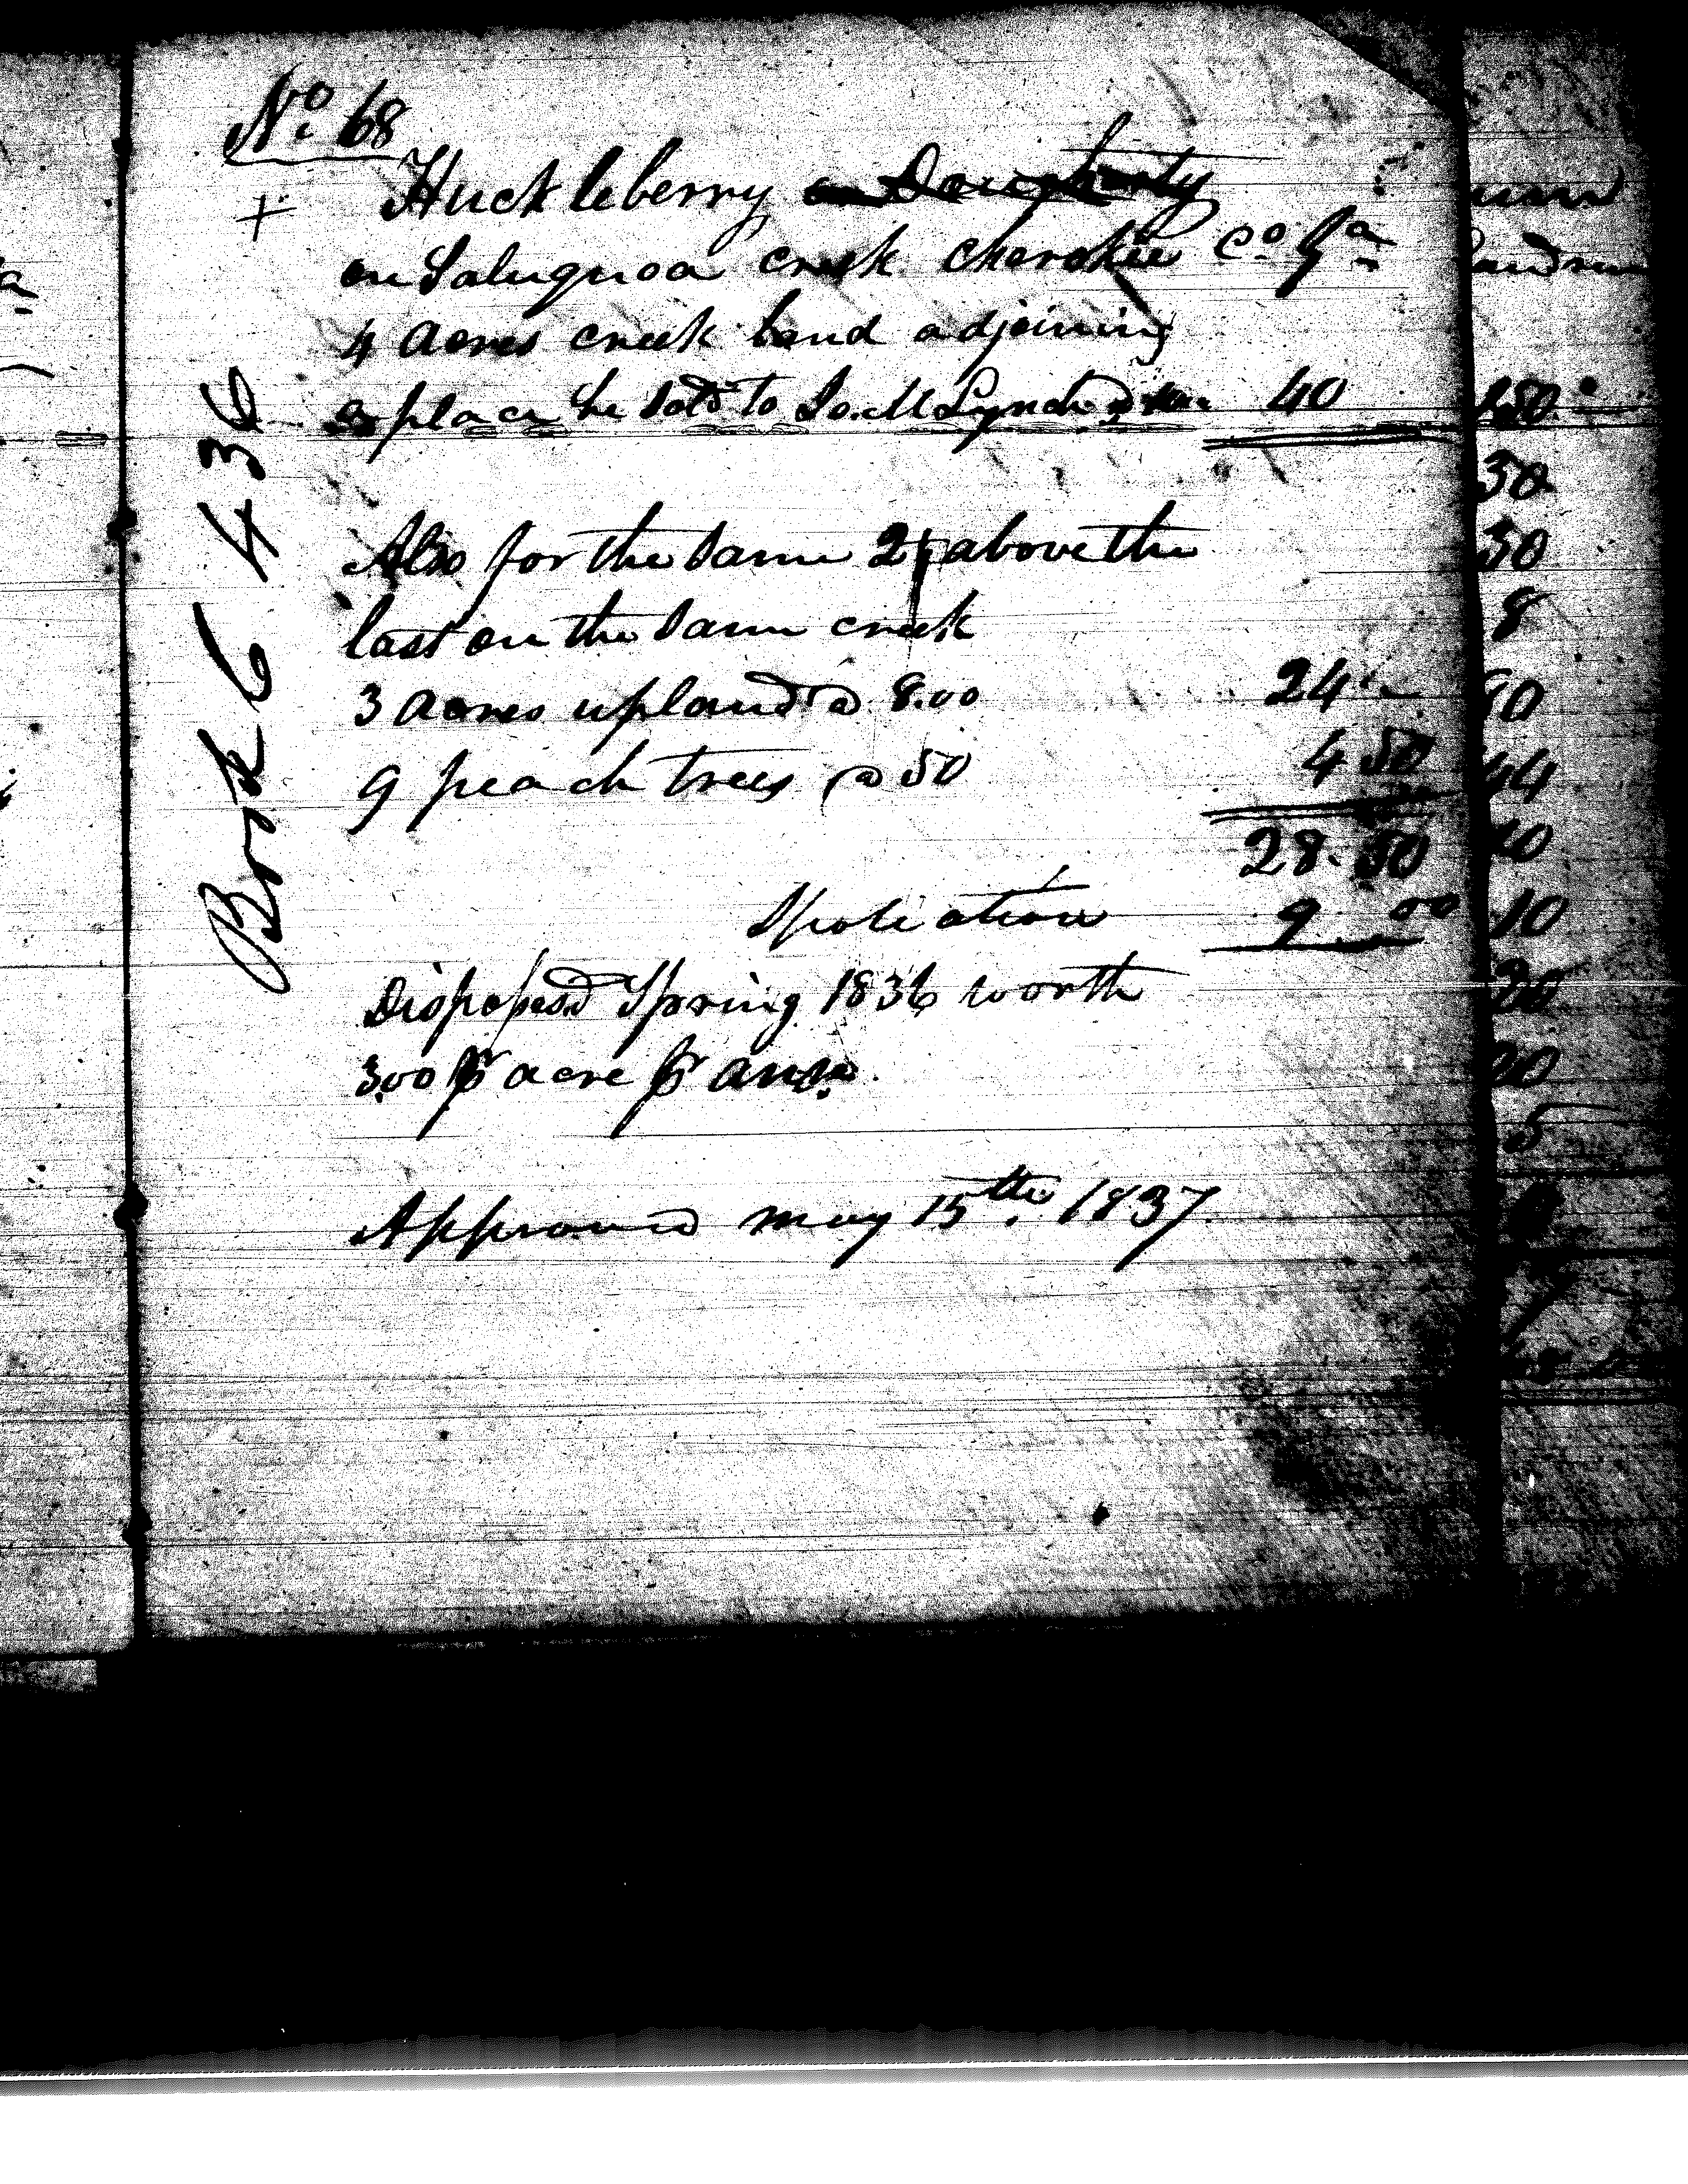 No. 68
Huckleberry or Daugherty
on Saluquoa creek cherokee Co. Ga
4 acres creek land adjoining
a place he sold to Jo. M Lynch @ 40
Also for the same 2 above the
last on the same creek
3 acres upland @ 8.00 24
9 peach trees @ 50 4 50
28. 50
Spoliation 9 00
Dispossd Spring 1836 worth
3.00 pr acre pr
Approved may 15th. 1837
Book 6 436
50
30
30
8
44
10
20
20
5